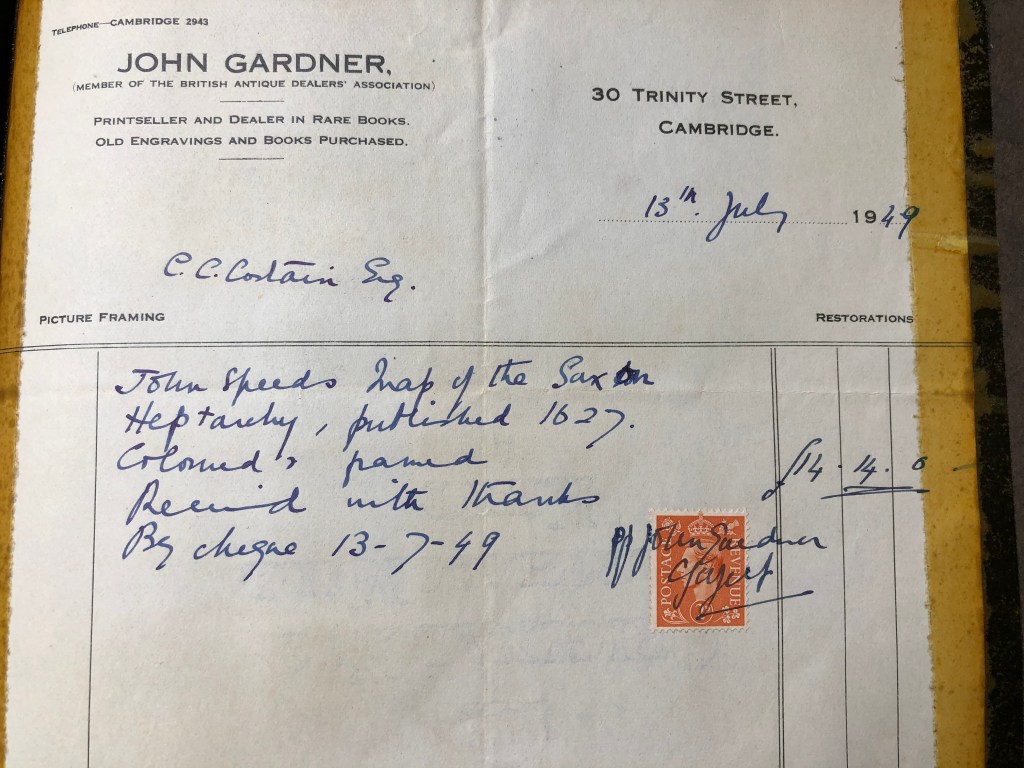 TELEPHONE—CAMBRIDGE 2943
JOHN GARDNER,
(MEMBER OF THE BRITISH ANTIQUE DEALERS' ASSOCIATION)
PRINTSELLER AND DEALER IN RARE BOOKS.
OLD ENGRAVINGS AND BOOKS PURCHASED.
30 TRINITY STREET,
CAMBRIDGE.
13th. July 1949
C. C. Costain Esq.
PICTURE FRAMING
RESTORATIONS
John Speeds Map of the Saxon
Heptarchy, published 1627.
Coloured & framed
£14. 14. 0
Received with thanks
By cheque 13-7-49
pp John Gardner
POSTAGE REVENUE